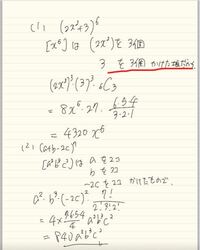 (1) (2x²+3)⁶
[x⁶]は (2x²)を3個
3 を3個 かけた項だから
(2x²)³・(3)³・₆C₃
= 8x⁶・27・6・5・4/3・2・1
= 4320x⁶
(2) (a+b-2c)⁷
[a²b³c²]は aを2コ
bを3コ
-2cを2コ かけたもので、
a²・b³・(-2c)²・7!/2!・3!・2!
= 4×7・6・5・4/4 a²b³c²
= 840a²b³c²